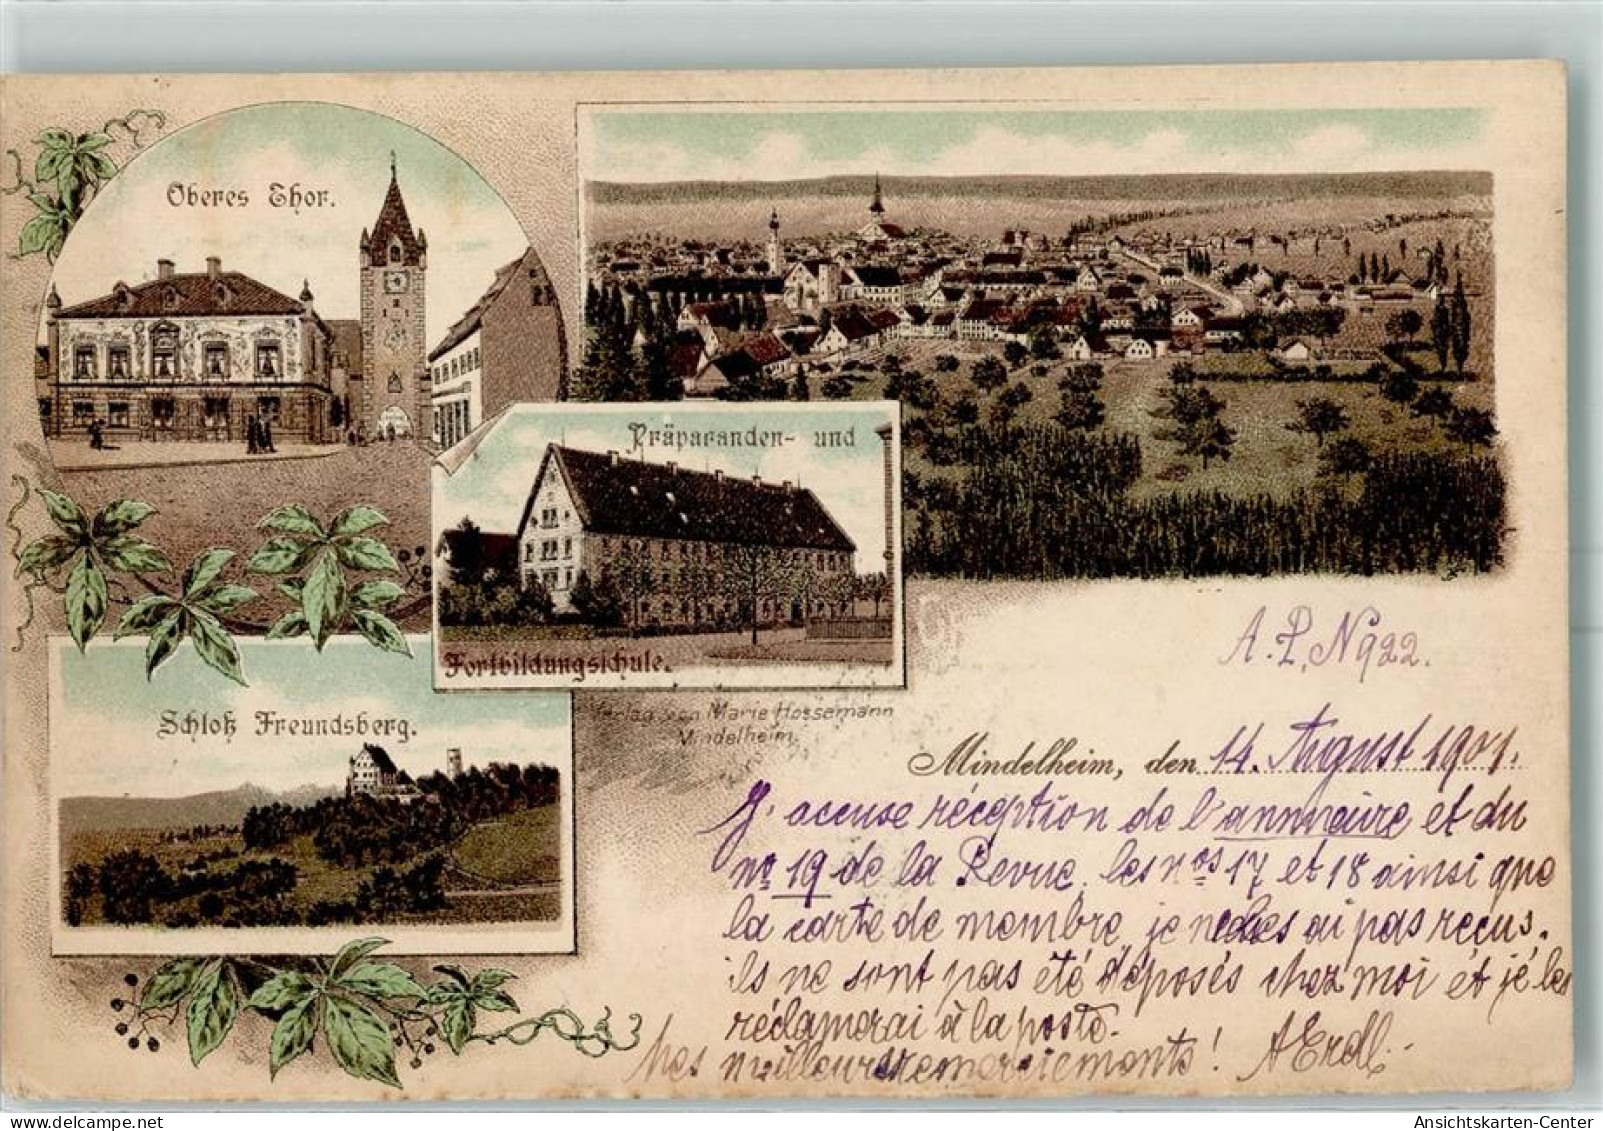 Oberes Thor.
Präparanden- und
Fortbildungsschule.
Schloß Freundsberg.
Verlag von Marie Hossemann
Mindelheim.
A. P. N 922.
Mindelheim, den 14. August 1901.
J'accuse réception de l'annuaire et du
nº 19 de la Revue, les nos 17 et 18 ainsi que
la carte de membre, je ne les ai pas reçus.
ils ne sont pas été déposés chez moi et je les
réclamerai à la poste.
Mes meilleurs remerciements! A Erdl.
Ansichtskarten-Center